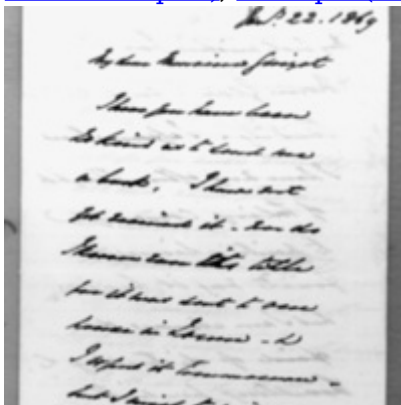 Nov. 22. 1869
My dear Monsieur Guizot
I hear you have been
so kind as to send me
a book. I have not
yet received it. nor do
I know even its title
for it was sent to our
house in
I expect it tomorrow -
but I